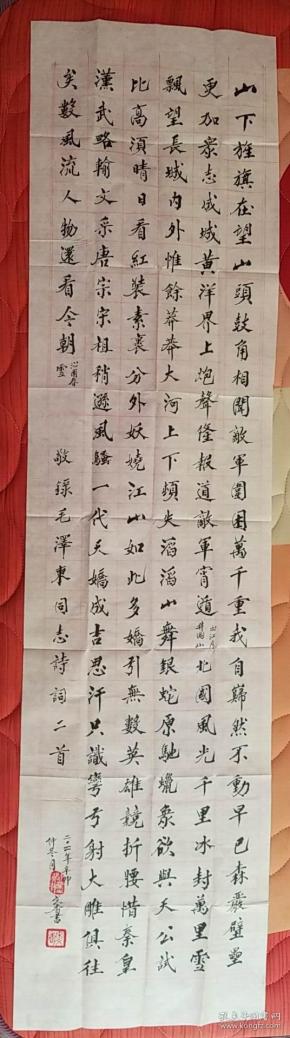 山下旌旗在望山頭鼓角相聞敵軍圍困萬千重我自巋然不動早已森嚴壁壘
更加衆志成城黃洋界上炮聲隆報道敵軍宵遁
西江月
井岡山
北國風光千里冰封萬里雪
飄望長城內外惟餘莽莽大河上下頓失滔滔山舞銀蛇原馳蠟象欲與天公試
比高須晴日看紅裝素裹分外妖嬈江山如此多嬌引無數英雄競折腰惜秦皇
漢武略輸文采唐宗宋祖稍遜風騷一代天嬌成吉思汗只識彎弓射大雕俱往
矣數風流人物還看今朝
沁園春
雪
敬錄毛澤東同志詩詞二首
二〇一一年辛卯
仲冬月
書